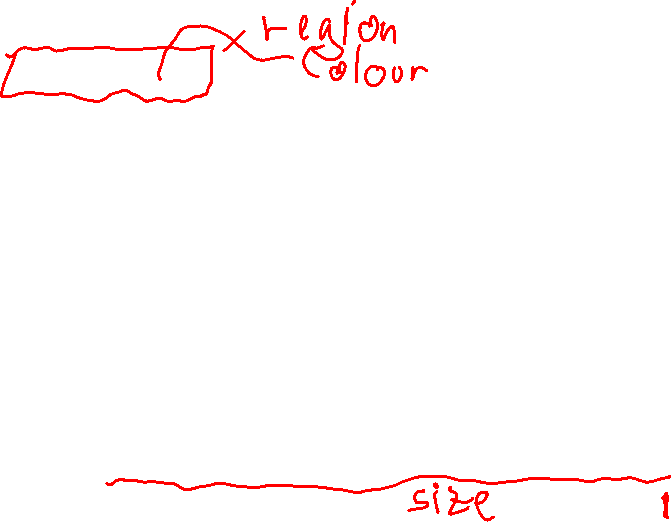 region
colour
size